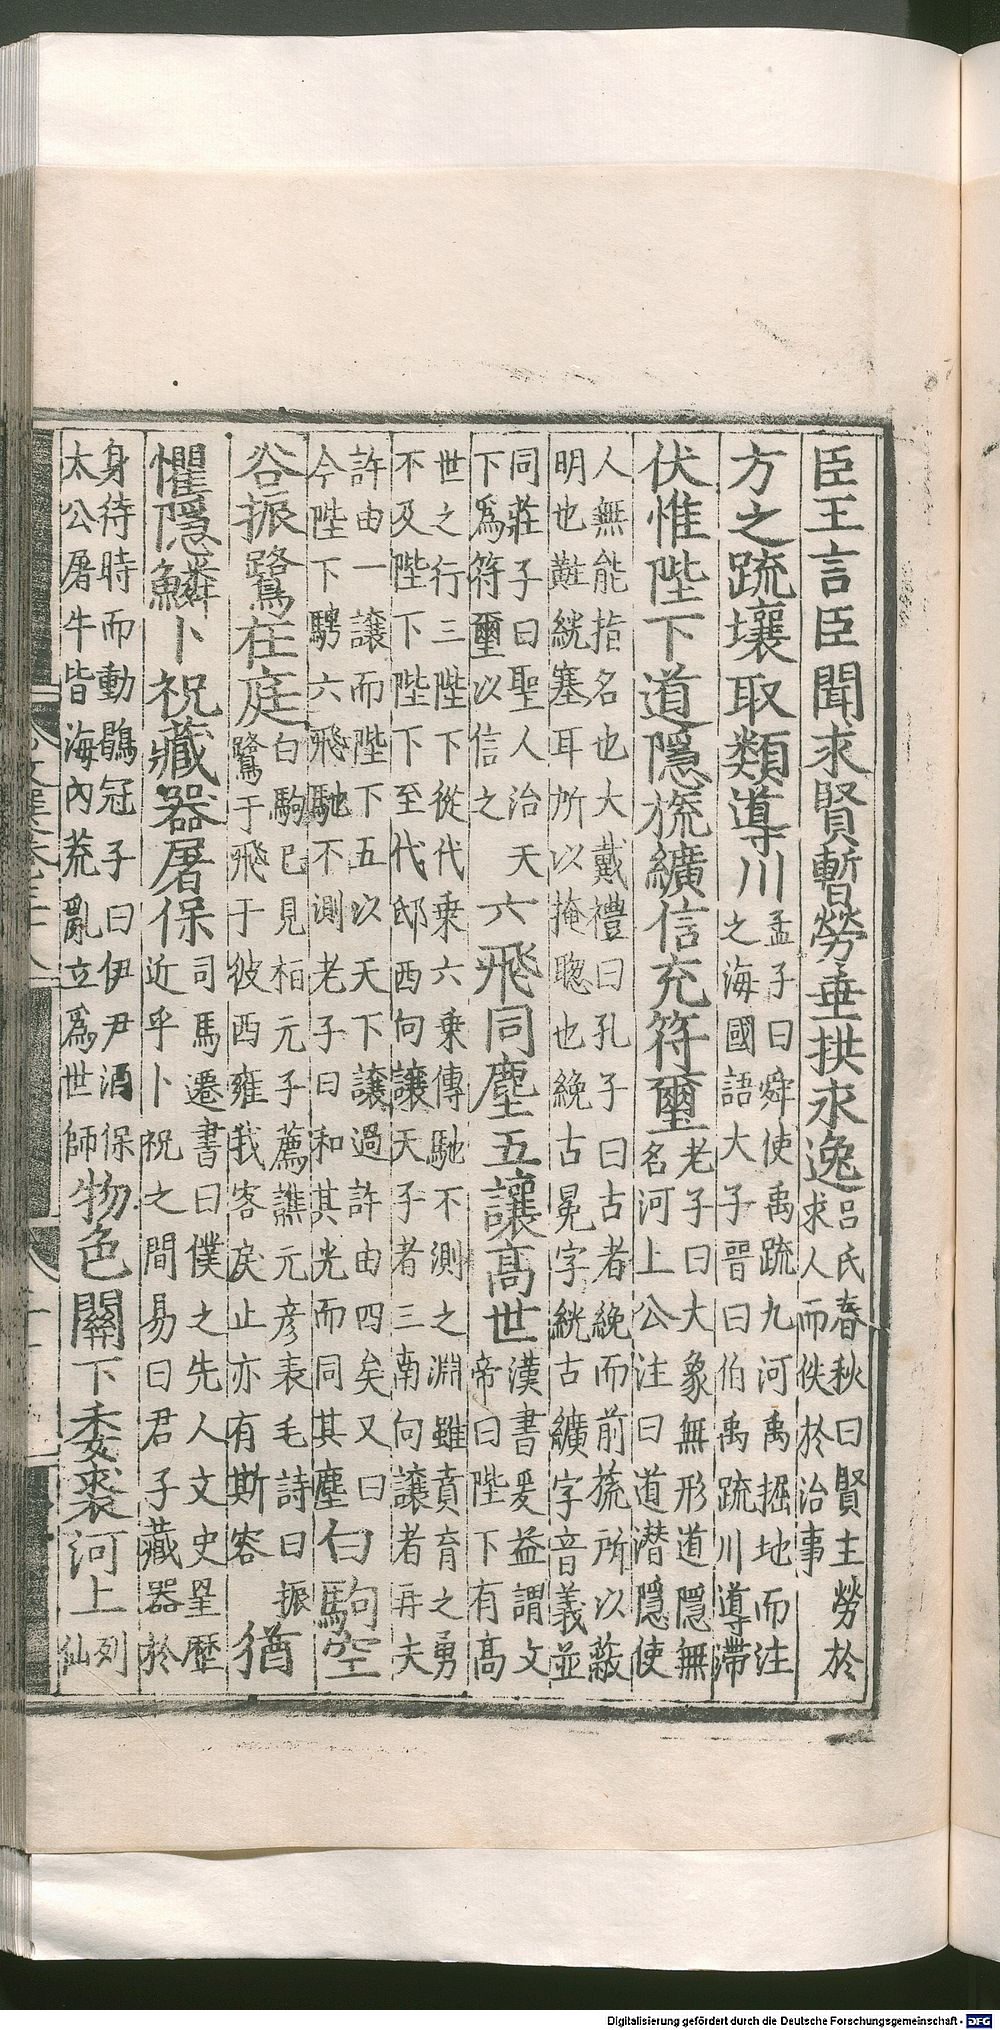 臣王言臣聞求賢暫勞垂拱永逸呂氏春秋曰賢主勞於求人而佚於治事
方之疏壤取類導川孟子曰舜使禹疏九河禹掘地而注之海國語大子晉曰伯禹疏川導滯
伏惟陛下道隱旒纊信充符璽老子曰大象無形道隱無名河上公注曰道潜隱使
人無能指名也大戴禮曰孔子曰古者絻而前旒所以蔽明也黈絖塞耳所以掩聦也絻古冕字絖古纊字音義並
同莊子曰聖人治天下爲符璽以信之六飛同塵五讓高世漢書爰益謂文帝曰陛下有高
世之行三陛下從代乗六乗傳馳不測之淵雖賁育之勇不及陛下陛下至代邸西向讓天子者三南向讓者再夫
許由一讓而陛下五以天下讓過許由四矣又曰今陛下騁六飛馳不測老子曰和其光而同其塵白駒空
谷振鷺在庭白駒已見栢元子薦譙元彦表毛詩曰振鷺于飛于彼西雍我客戾止亦有斯容猶
懼隱鱗卜祝藏器屠保司馬遷書曰僕之先人文史星歷近乎卜祝之間易曰君子藏器於
身待時而動鶡冠子曰伊尹酒保太公屠牛皆海內荒亂立爲世師物色關下委裘河上列仙
Digitalisierung gefördert durch die Deutsche Forschungsgemeinschaft - DFG